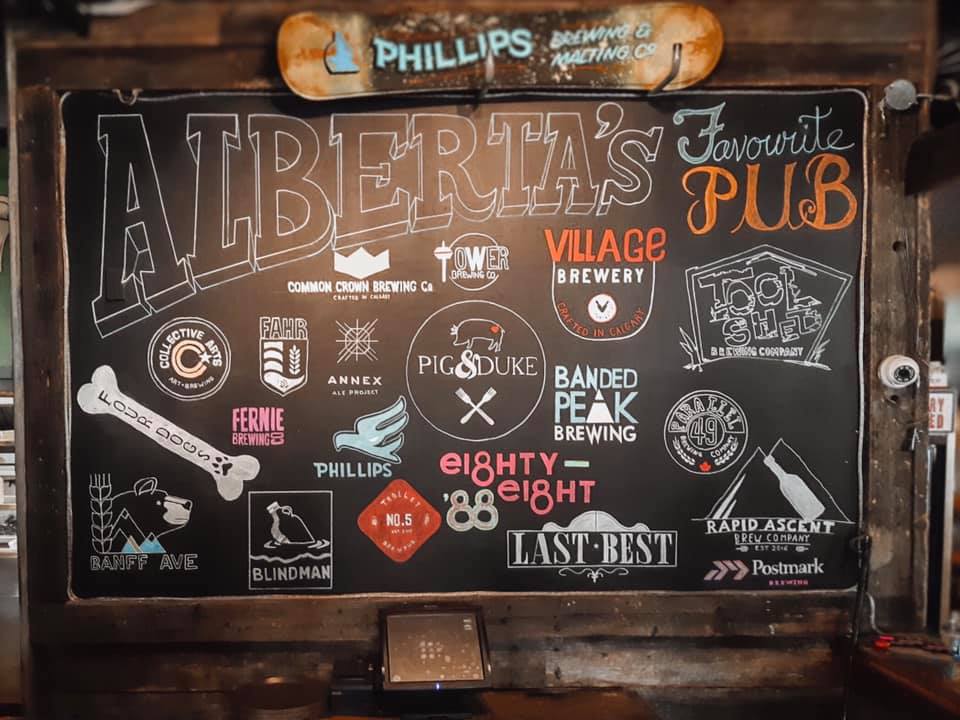 PHILLIPS BREWING &
MALTING CO
ALBERTA'S
Favourite
PUB
COMMON CROWN BREWING Co
CRAFTED IN CALGARY
TOWER
BREWING CO.
VILLAGE
BREWERY
CRAFTED IN CALGARY
TOOL
SHED
BREWING COMPANY
COLLECTIVE ARTS
ART · BREWING
FAHR
ANNEX
ALE PROJECT
PIG & DUKE
BANDED
PEAK
BREWING
PARALLEL
49
BREWING COMPANY
FOUR DOGS
FERNIE
BREWING CO
PHILLIPS
EIGHTY-
EIGHT
'88
TROLLEY
NO.5
BREWPUB
BANFF AVE
BLINDMAN
LAST·BEST
RAPID ASCENT
BREW COMPANY
EST 2016
Postmark
BREWING